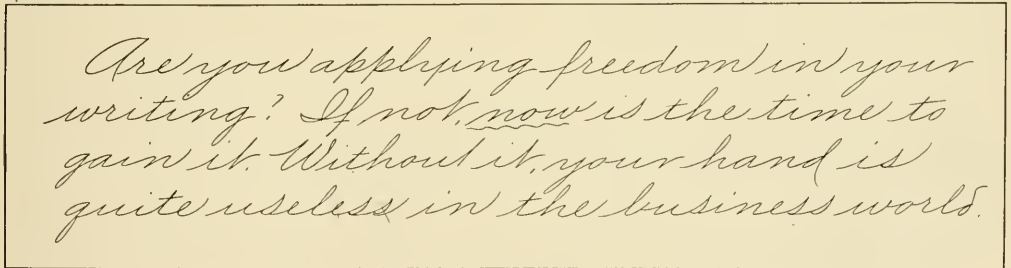 Are you applying freedom in your
writing? If not, now is the time to
gain it. Without it, your hand is
quite useless in the business world.